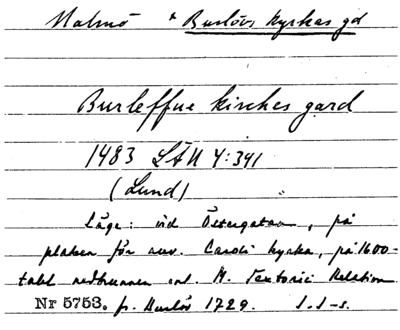 Malmö * Burlövs kyrkas gd
Burleffue kirches gard
1483 LÄU 4:341
(Lund)
Läge: vid Östergatan, på
platsen för nuv. Caroli kyrka, på 1600-
talet nedbrunnen enl. M. Textorii Relation
Nr 5753. fr. Burlöv 1729. S.S-s.